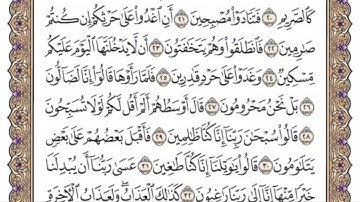 كَٱلصَّرِيمِ ٢٠ فَتَنَادَوْا۟ مُصْبِحِينَ ٢١ أَنِ ٱغْدُوا۟ عَلَىٰ حَرْثِكُمْ إِن كُنتُمْ
صَـٰرِمِينَ ٢٢ فَٱنطَلَقُوا۟ وَهُمْ يَتَخَـٰفَتُونَ ٢٣ أَن لَّا يَدْخُلَنَّهَا ٱلْيَوْمَ عَلَيْكُم
مِّسْكِينٌ ٢٤ وَغَدَوْا۟ عَلَىٰ حَرْدٍ قَـٰدِرِينَ ٢٥ فَلَمَّا رَأَوْهَا قَالُوٓا۟ إِنَّا لَضَآلُّونَ
٢٦ بَلْ نَحْنُ مَحْرُومُونَ ٢٧ قَالَ أَوْسَطُهُمْ أَلَمْ أَقُل لَّكُمْ لَوْلَا تُسَبِّحُونَ
٢٨ قَالُوا۟ سُبْحَـٰنَ رَبِّنَآ إِنَّا كُنَّا ظَـٰلِمِينَ ٢٩ فَأَقْبَلَ بَعْضُهُمْ عَلَىٰ بَعْضٍ
يَتَلَـٰوَمُونَ ٣٠ قَالُوا۟ يَـٰوَيْلَنَآ إِنَّا كُنَّا طَـٰغِينَ ٣١ عَسَىٰ رَبُّنَآ أَن يُبْدِلَنَا
خَيْرًا مِّنْهَآ إِنَّآ إِلَىٰ رَبِّنَا رَٰغِبُونَ ٣٢ كَذَٰلِكَ ٱلْعَذَابُ ۖ وَلَعَذَابُ ٱلْـَٔاخِرَةِ